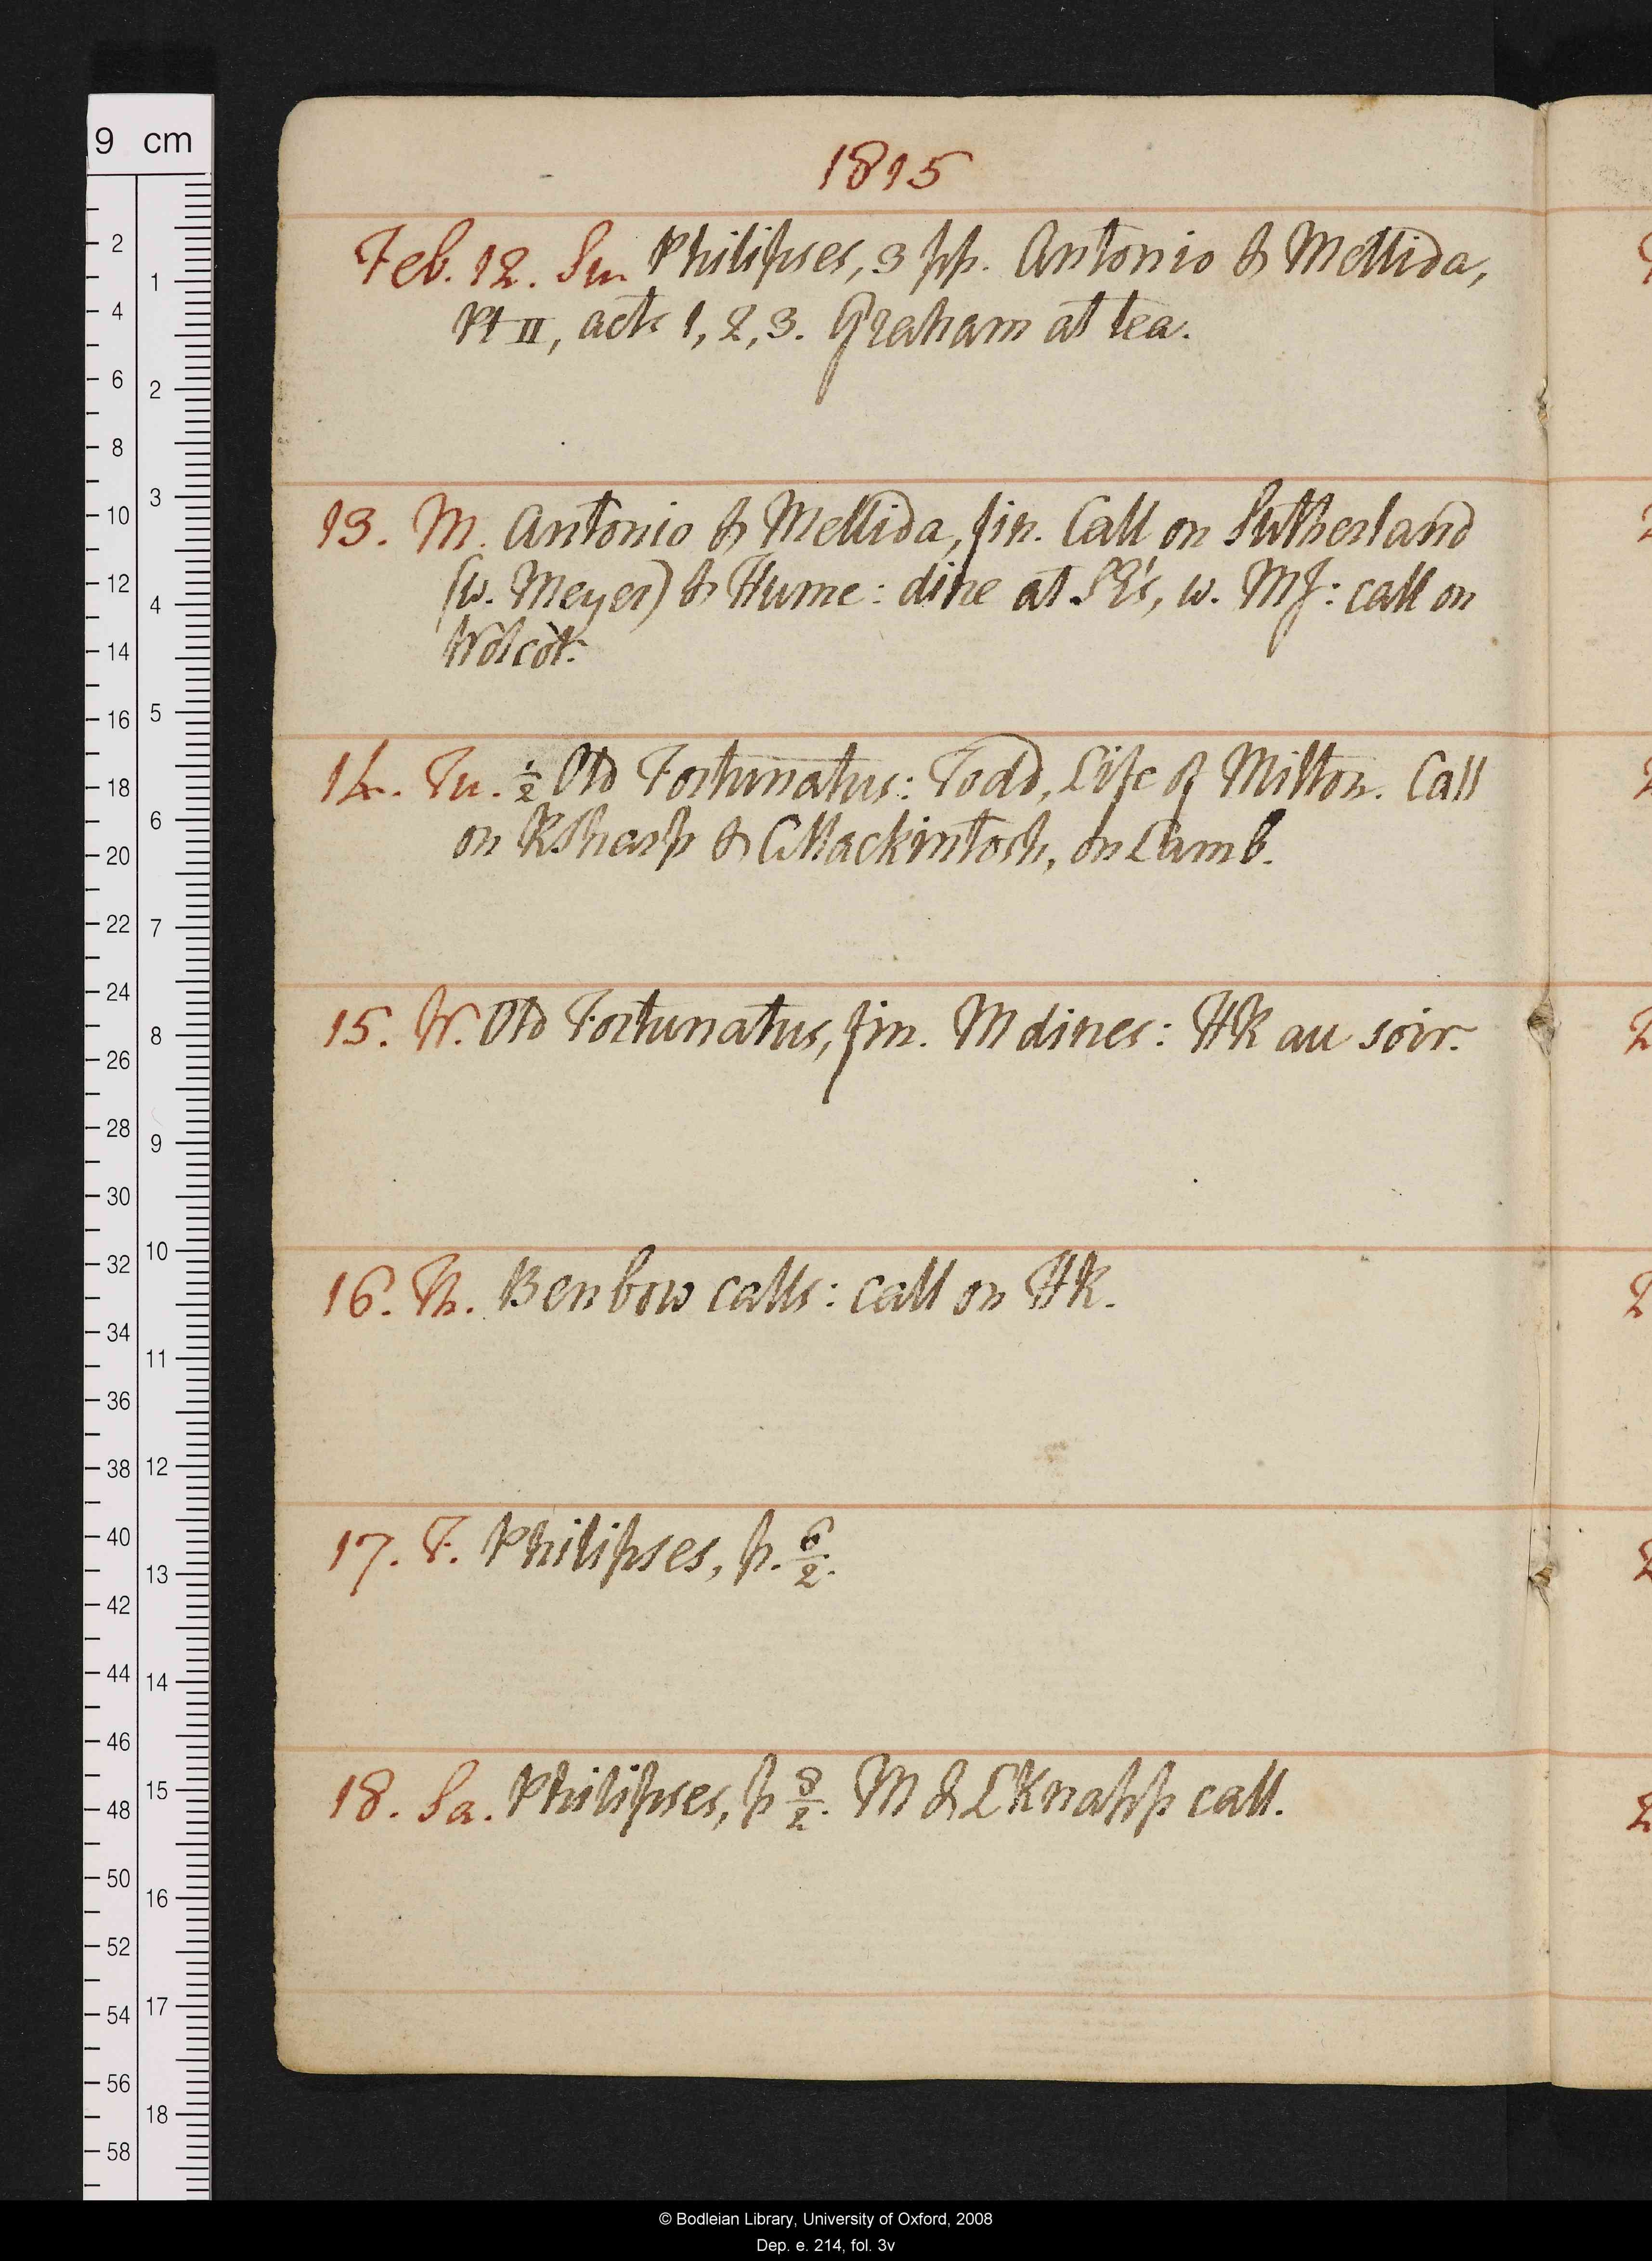 1815
Feb. 12. Su. Philipses, 3 pp. Antonio & Mellida,
Pt II, acts 1, 2, 3. Graham at tea.
13. M. Antonio & Mellida, fin. Call on Sutherland
(w. Meyer) & Hume: dine at SE's, w. MJ: call on
Wolcot.
14. Tu. ½ Old Fortunatus: Todd, Life of Milton. Call
on RSharp & CMackintosh, on Lamb.
15. W. Old Fortunatus, fin. M dines: HR au soir.
16. Th. Benbow calls: call on HR.
17. F. Philipses, p. 6/2.
18. Sa. Philipses, p 8/2. M & LKnapp call.
9 cm
2 4 6 8 10 12 14 16 18 20 22 24 26 28 30 32 34 36 38 40 42 44 46 48 50 52 54 56 58
1 2 3 4 5 6 7 8 9 10 11 12 13 14 15 16 17 18
© Bodleian Library, University of Oxford, 2008
Dep. e. 214, fol. 3v